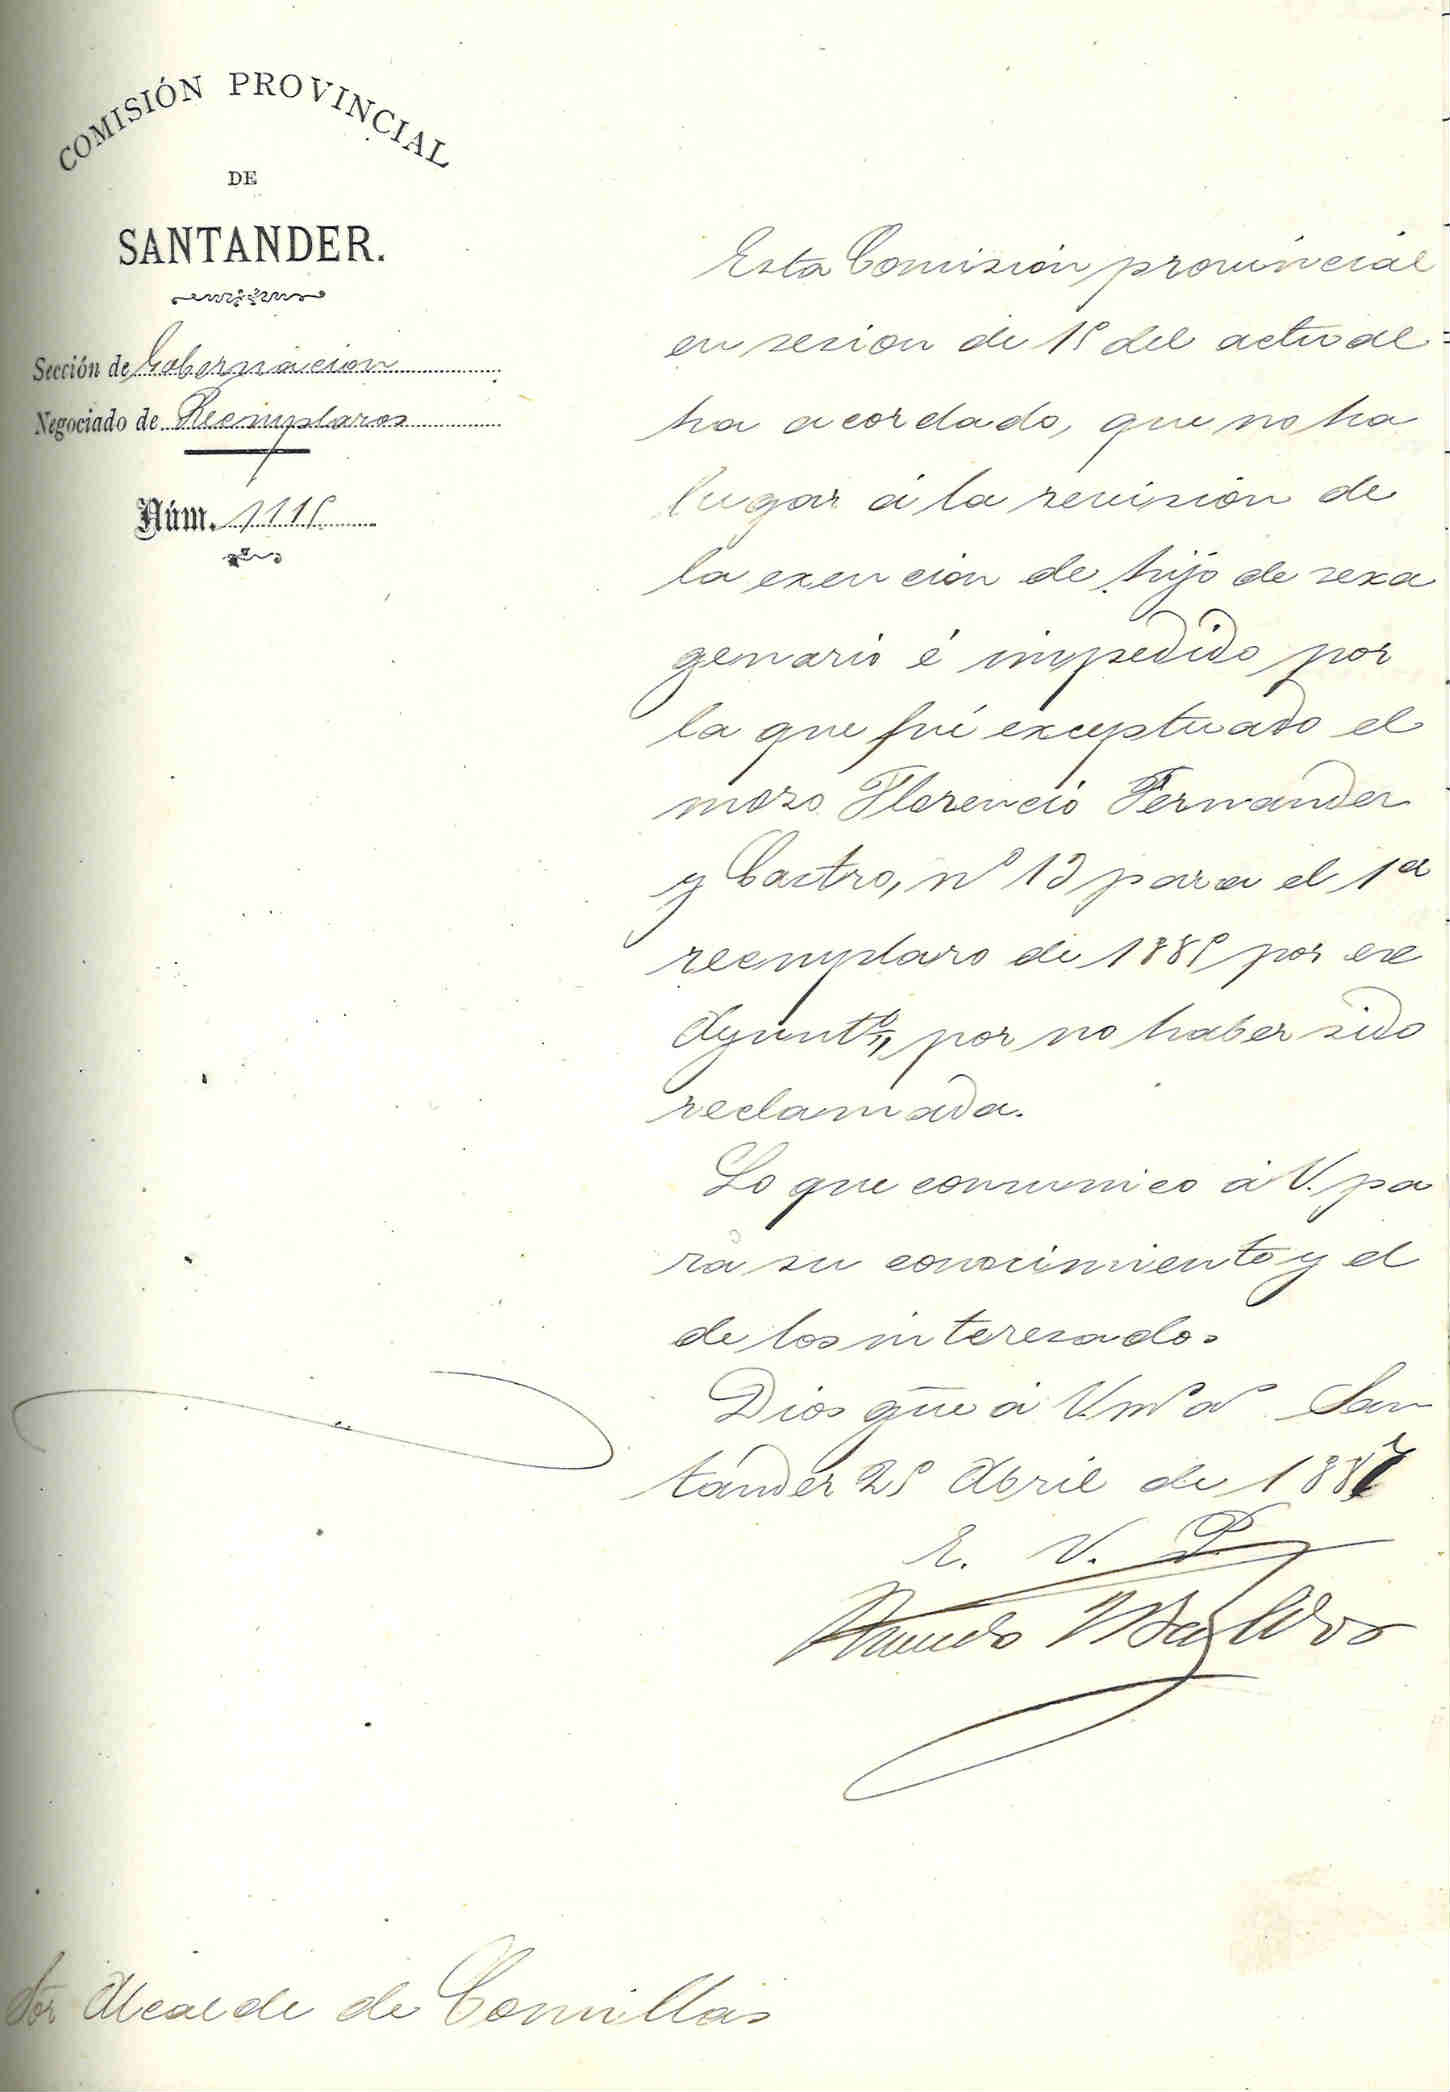 COMISIÓN PROVINCIAL
DE
SANTANDER.
Sección de Gobernacion
Negociado de Reemplazos
Núm. 1115
Esta Comision provincial
en sesion de 15 del actual
ha acordado, que no ha
lugar á la revision de
la exencion de hijo de sexa
genario é impedido por
la que fué exceptuado el
mozo Florencio Fernandez
y Castro, nº 12 para el 1er
reemplazo de 1885 por ese
Ayuntº, por no haber sido
reclamada.
Lo que comunico á V. pa
ra su conocimiento y el
de los interesados
Dios gūe á V. ms as San
tander 25 Abril de 1887
E. V. P.
Sor Alcalde de Comillas